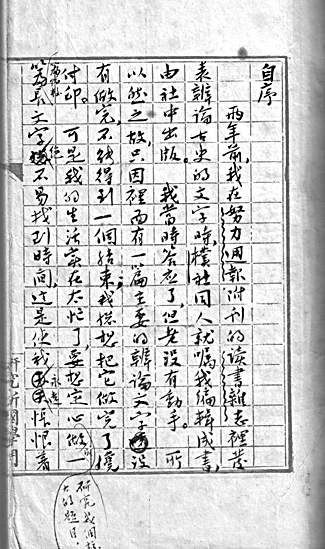 自序
兩年前,我在努力週報附刊的讀書雜志裡發
表辨論古史的文字時,樸社同人就囑我編輯成書,
由社中出版。我當時答應了,但老沒有動手。所
以然之故,只因裡面有一篇主要的辨論文字沒
有做完,不能得到一個結束;我總想把它做完了纔
付印。可是我的生活實在太忙了,要想定心做一
篇長文字,絕不易找到時間,這是使我永遠悵恨着
研究所國學門
研究我個
的題目